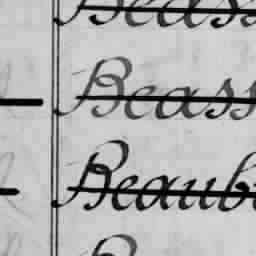 Beass
Beass
Beaub